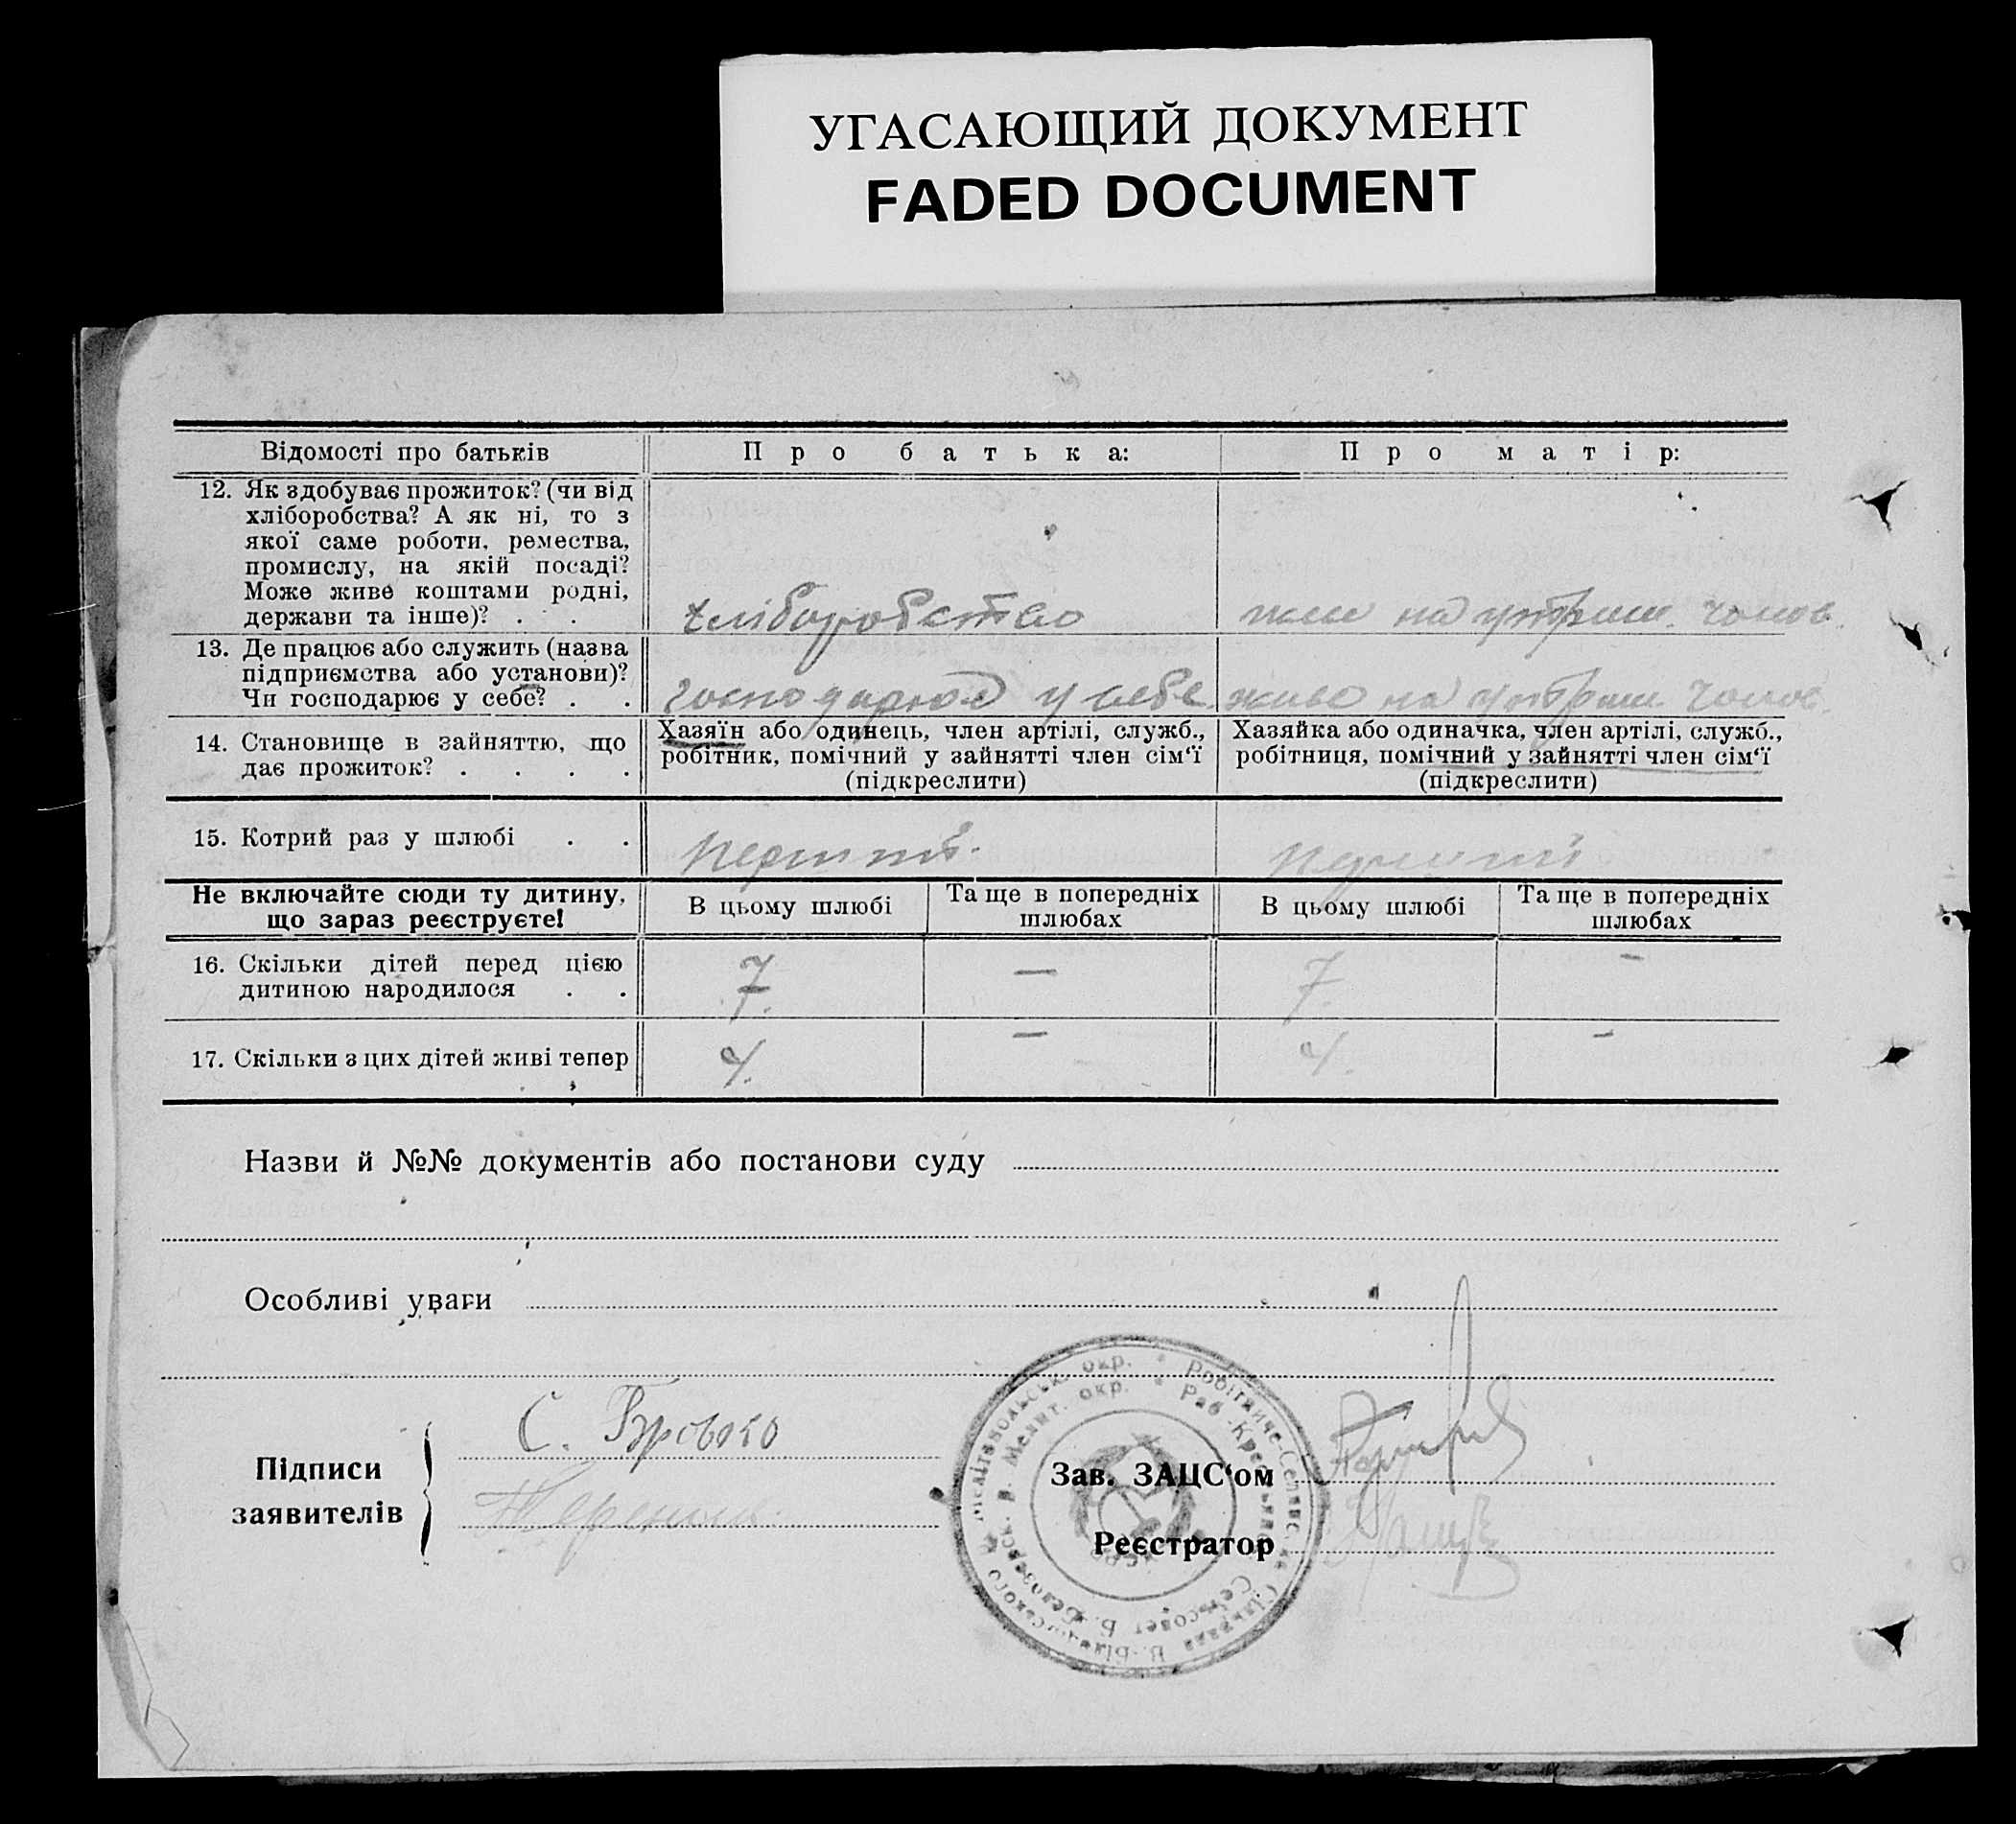 УГАСАЮЩИЙ ДОКУМЕНТ
FADED DOCUMENT
Відомості про батьків
Про батька:
Про матір:
12. Як здобуває прожиток? (чи від
хліборобства? А як ні, то з
якої саме роботи, ремества,
промислу, на якій посаді?
Може живе коштами родні,
держави та інше)? . .
хліборобство
живе на утрим. чолов.
13. Де працює або служить (назва
підприємства або установи)?
Чи господарює у себе? . .
господарює у себе
живе на утрим. чолов.
14. Становище в зайняттю, що
дає прожиток? . . . .
Хазяїн або одинець, член артілі, служб.,
робітник, помічний у зайнятті член сім‘ї
(підкреслити)
Хазяйка або одиначка, член артілі, служб.,
робітниця, помічний у зайнятті член сім‘ї
(підкреслити)
15. Котрий раз у шлюбі . .
перший.
перший
Не включайте сюди ту дитину,
що зараз реєструєте!
В цьому шлюбі
Та ще в попередніх
шлюбах
В цьому шлюбі
Та ще в попередніх
шлюбах
16. Скільки дітей перед цією
дитиною народилося . .
7.
—
7.
—
17. Скільки з цих дітей живі тепер
4.
—
4.
—
Назви й №№ документів або постанови суду
Особливі уваги
Підписи
заявителів
С. Бровко
Зав. ЗАЦС‘ом
Реєстратор
окр. * Робітниче-Селянс
Мелит. окр. * Раб.-Крестьянск
Сельсовет Б.-Белозерск. р.